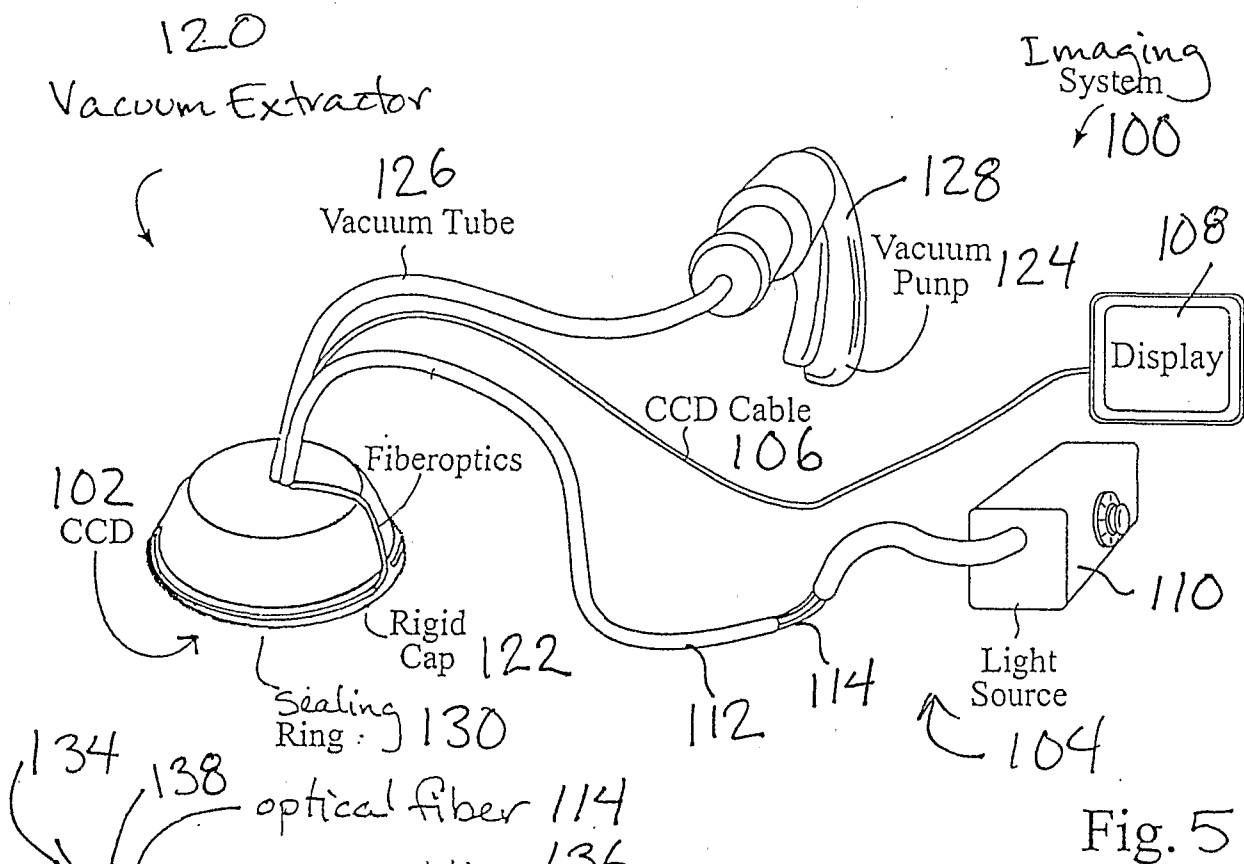 120
Vacuum Extractor
Imaging
System
100
126
Vacuum Tube
128
Vacuum
Punp
124
108
Display
CCD Cable
106
Fiberoptics
102
CCD
Rigid
Cap
122
110
Light
Source
112
114
104
Sealing
Ring
130
134
138
optical fiber 114
136
Fig. 5